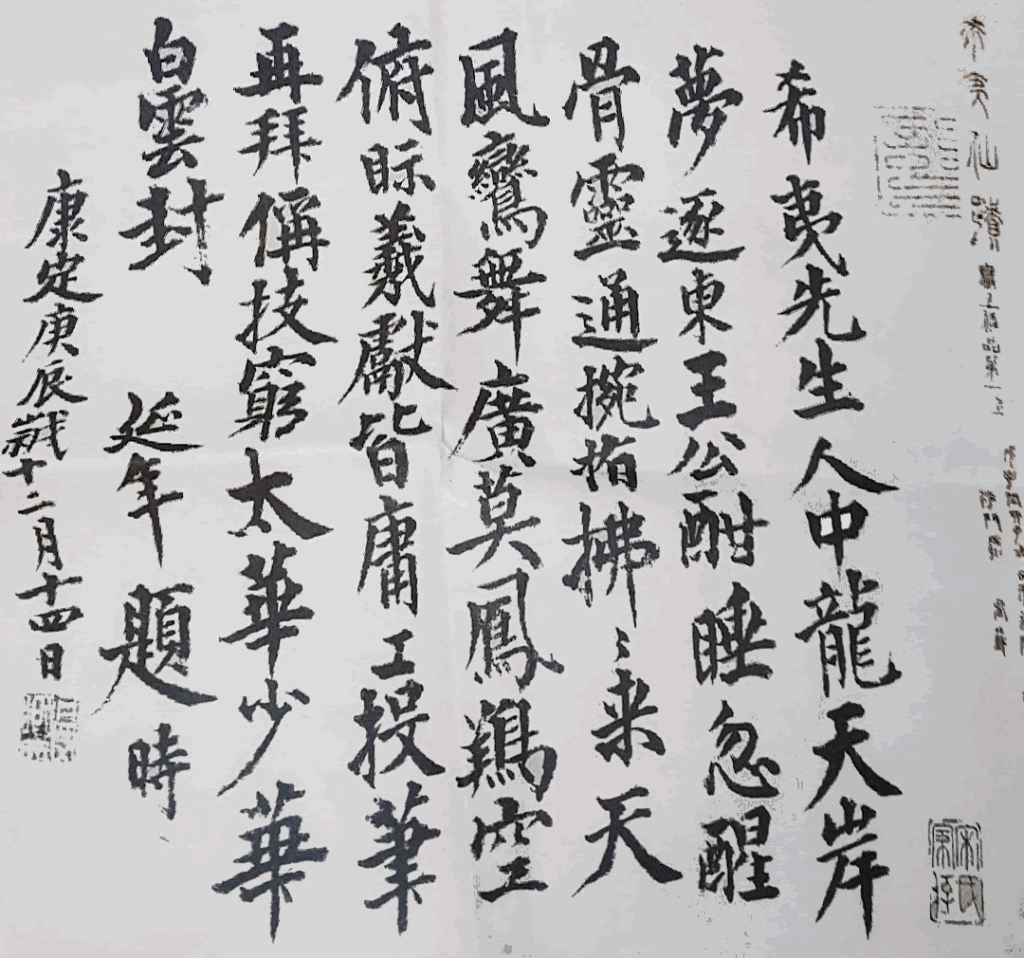 希夷仙蹟
希夷先生人中龍天岸
夢逐東王公酣睡忽醒
骨靈通捥指拂〻来天
風鸞舞廣莫鳳鶏空
俯眎羲獻皆庸工投筆
再拜稱技窮太華少華
白雲封
延年題時
康定庚辰歲十二月十四日